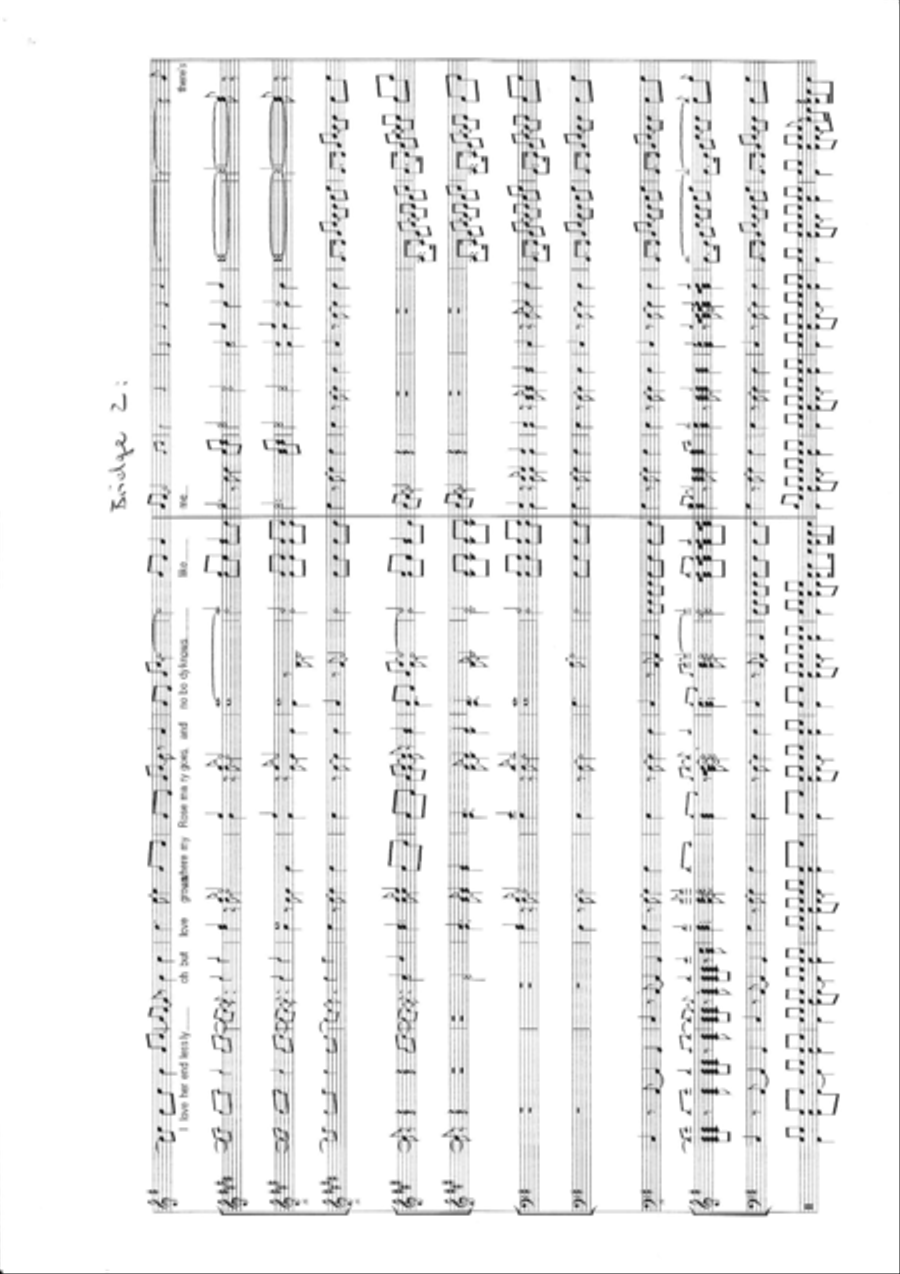 Bridge 2:
I love her end lessly...... oh but love grows where my Rose ma ry goes and no bo dy knows............ like...... me... there's